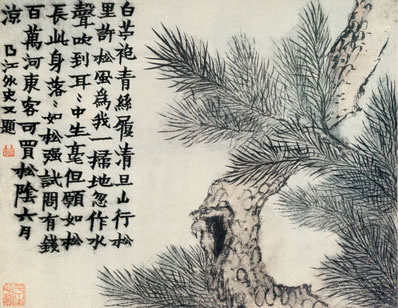 白苧袍青絲履清旦山行松
里許松風為我一掃地忽作水
聲吹到耳〻中生毫但願如松
長此身落〻如松强試問有錢
百萬河東客可買松陰六月
涼 曲江外史又題